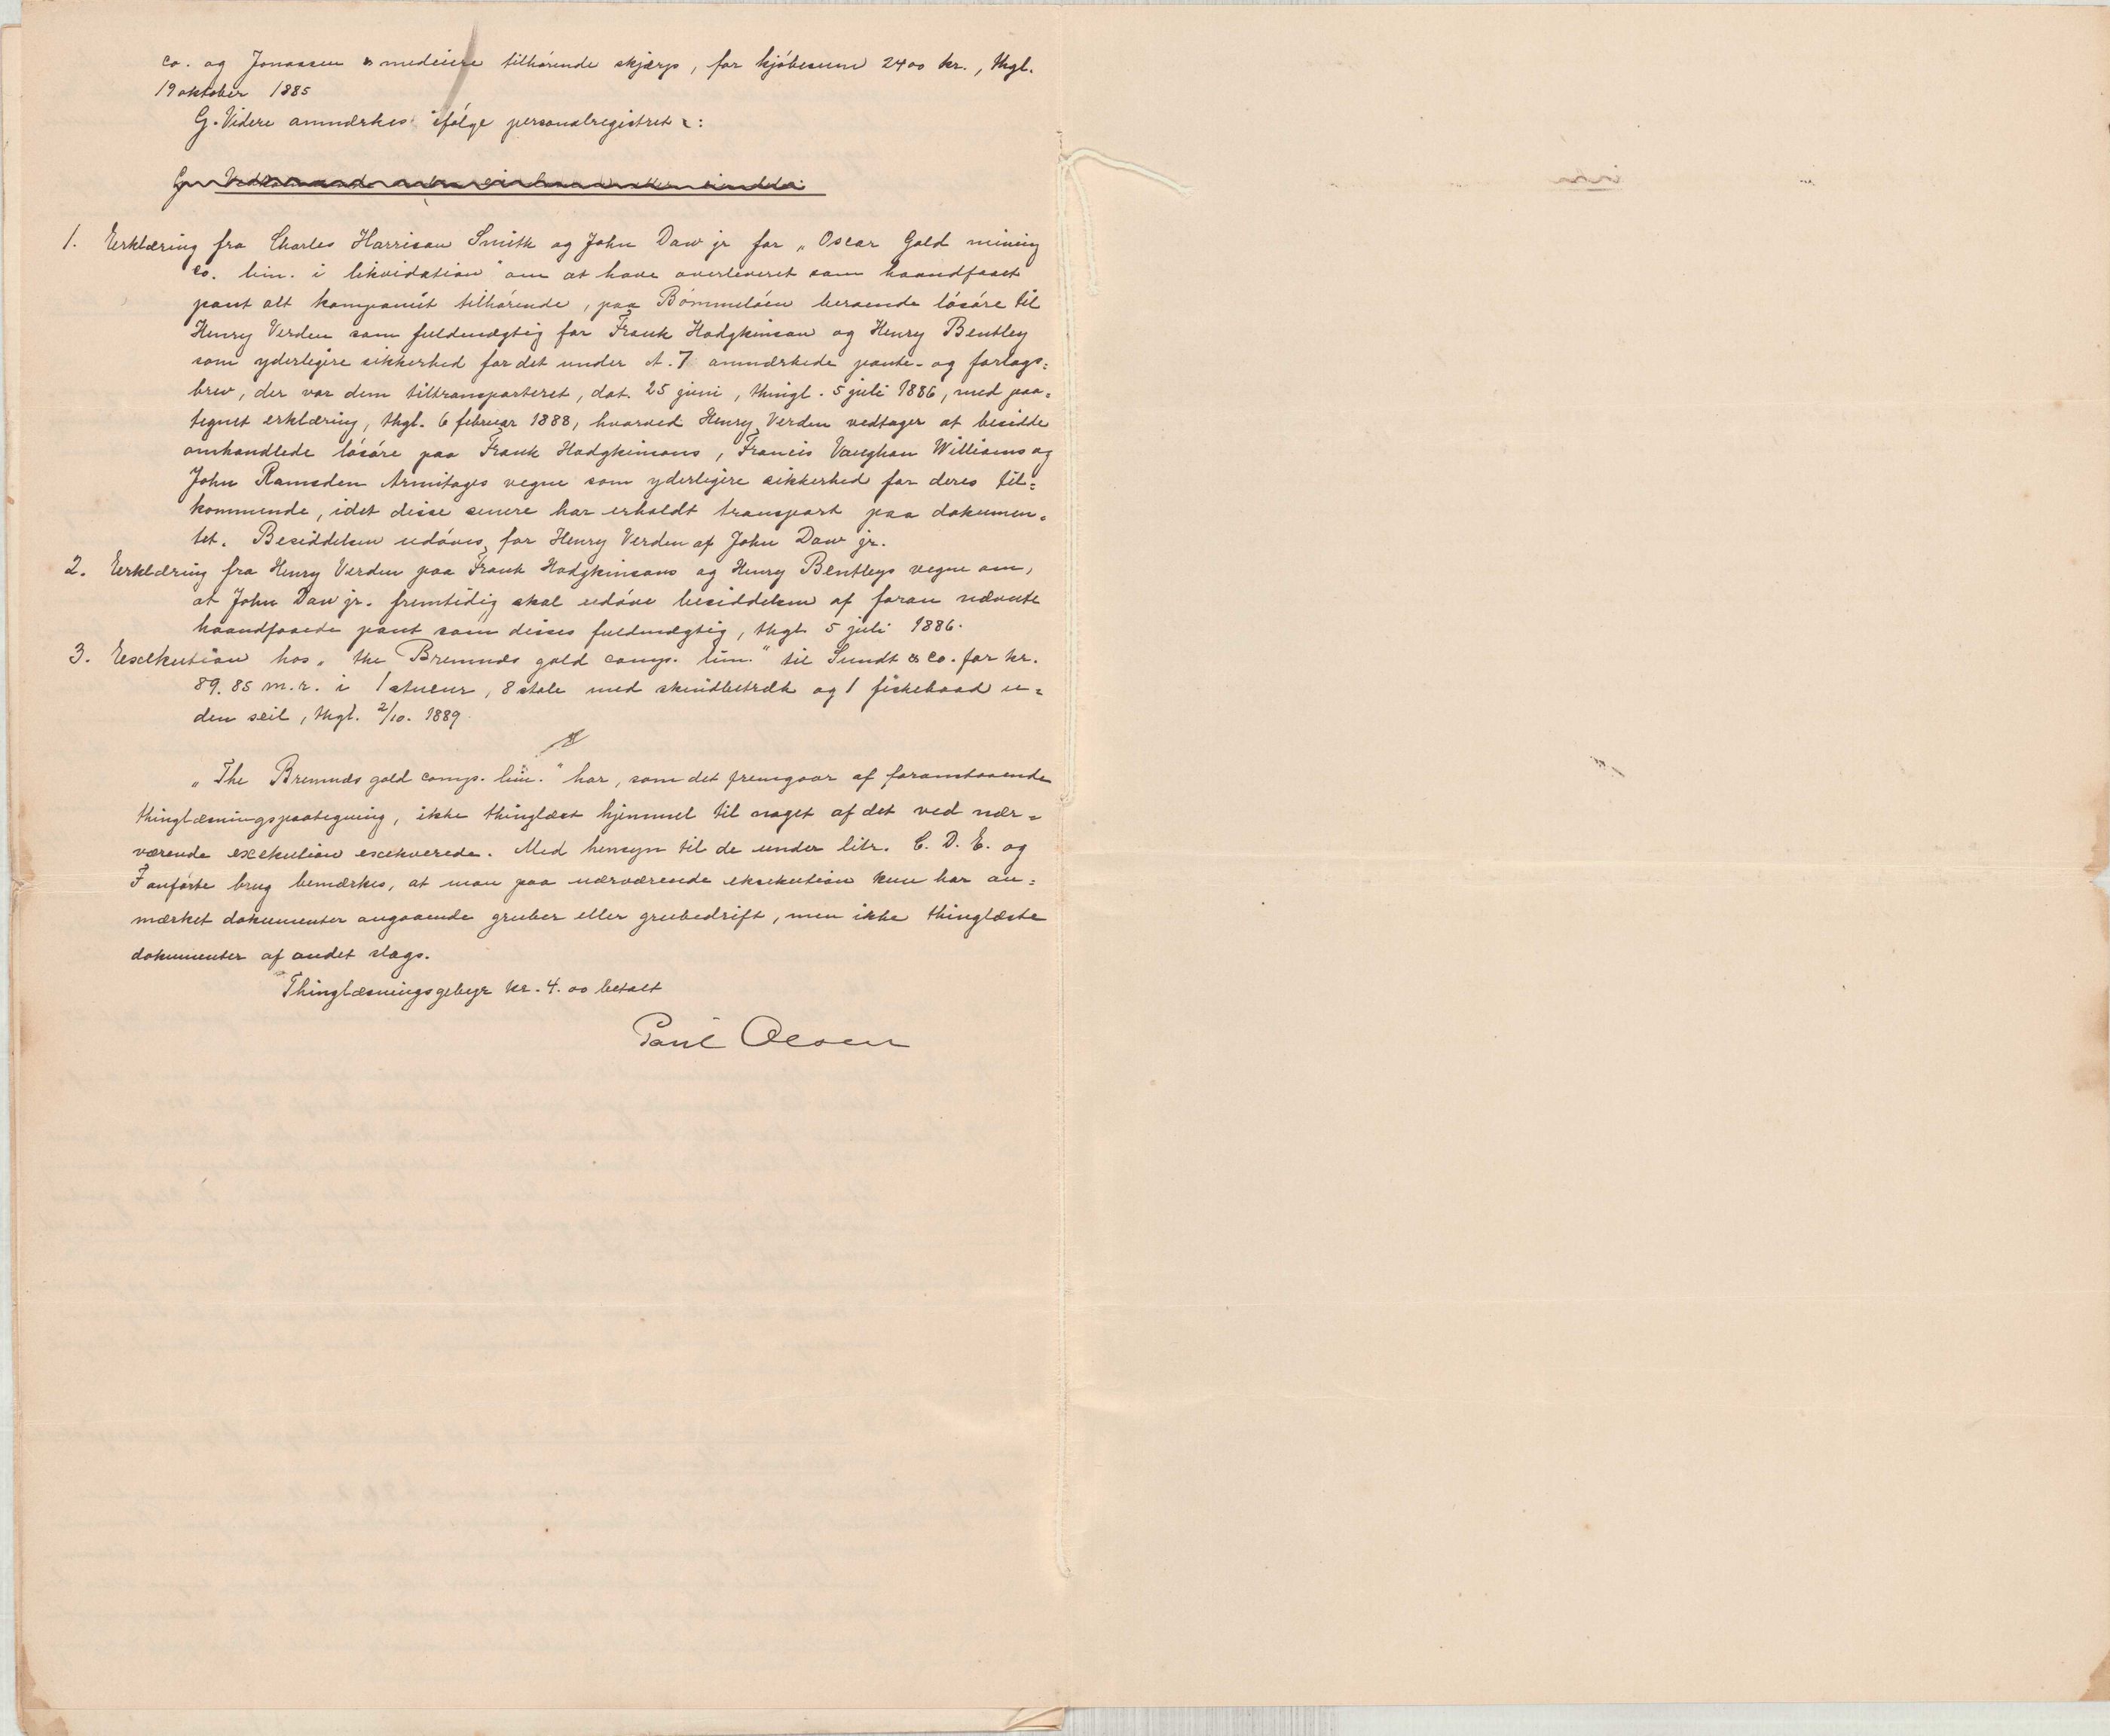 co. og Jonassen & medeiere tilhørende skjærp, for kjøbesum 2400 kr., thgl.
19 oktober 1885
G. Videre anmærkes ifølge personalregistret:
1. Erklæring fra Charles Harrison Smith og John Daw jr for „Oscar Gold mining
co. lim. i likvidation" om at have overleveret som haandfaaet
pant alt kompaniet tilhørende, paa Bømmeløen beroende løsøre til
Henry Verden som fuldmægtig for Frank Hodgkinson og Henry Bentley
som yderligere sikkerhed for det under A. 7 anmærkede pante- og forlags=
brev, der var dem tiltransporteret, dat. 25 juni, thingl. 5 juli 1886, med paa=
tegnet erklæring, thgl. 6 februar 1888, hvorved Henry Verden vedtager at besidde
omhandlede løsøre paa Frank Hodgkinsons, Francis Vaughan Williams og
John Ramsden Armitages vegne som yderligere sikkerhed for deres til=
kommende, idet disse senere har erholdt transport paa dokumen=
tet. Besiddelsen udøves for Henry Verden af John Daw jr.
2. Erklæring fra Henry Verden paa Frank Hodgkinsons og Henry Bentleys vegne om,
at John Daw jr. fremtidig skal udøve besiddelsen af foran nævnte
haandfaaede pant som disses fuldmægtig, thgl. 5 juli 1886.
3. Exekution hos „the Bremnæs gold comp. lim." til Sundt & Co. for kr.
89.85 m.r. i 1 stueur, 8 stole med skindbetræk og 1 fiskebaad u=
den seil, thgl. 2/10. 1889
„The Bremnæs gold comp. lim." har, som det fremgaar af foranstaaende
thinglæsningspaategning, ikke thinglæst hjemmel til noget af det ved nær=
værende exekution exekverede. Med hensyn til de under litr. C. D. E. og
F anførte brug bemærkes, at man paa nærværende eksekution kun har an=
mærket dokumenter angaaende gruber eller grubedrift, men ikke thinglæste
dokumenter af andet slags.
Thinglæsningsgebyr kr. 4.00 betalt
Paul Olsen